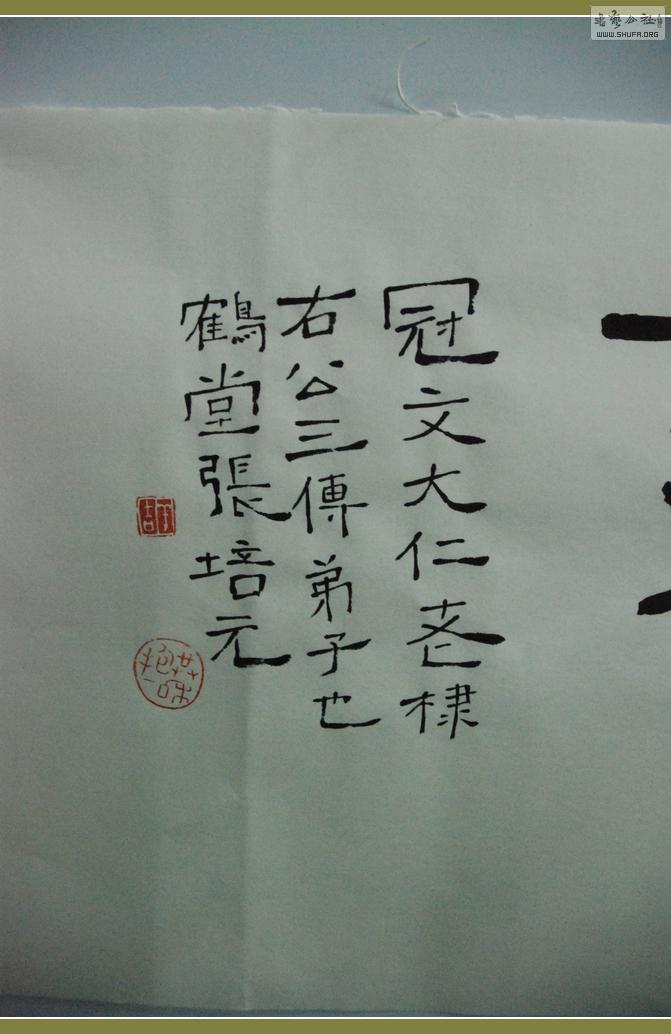 冠文大仁老棣
右公三傳弟子也
鶴堂張培元
WWW.SHUFA.ORG